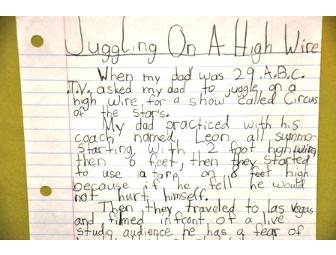 Juggling On A High Wire
When my dad was 29 A.B.C.
T.V. asked my dad to juggle on a
high wire for a show called Circus
of the Stars.
My dad practiced with his
coach named Leon all summer
starting with 2 foot high wire,
then 6 feet, then they started
to use a tarp on 8 feet high
because if he fell he would
not hurt himself.
Then they traveled to Las Vegas
and filmed infront of a live
studio audience he has a fear of